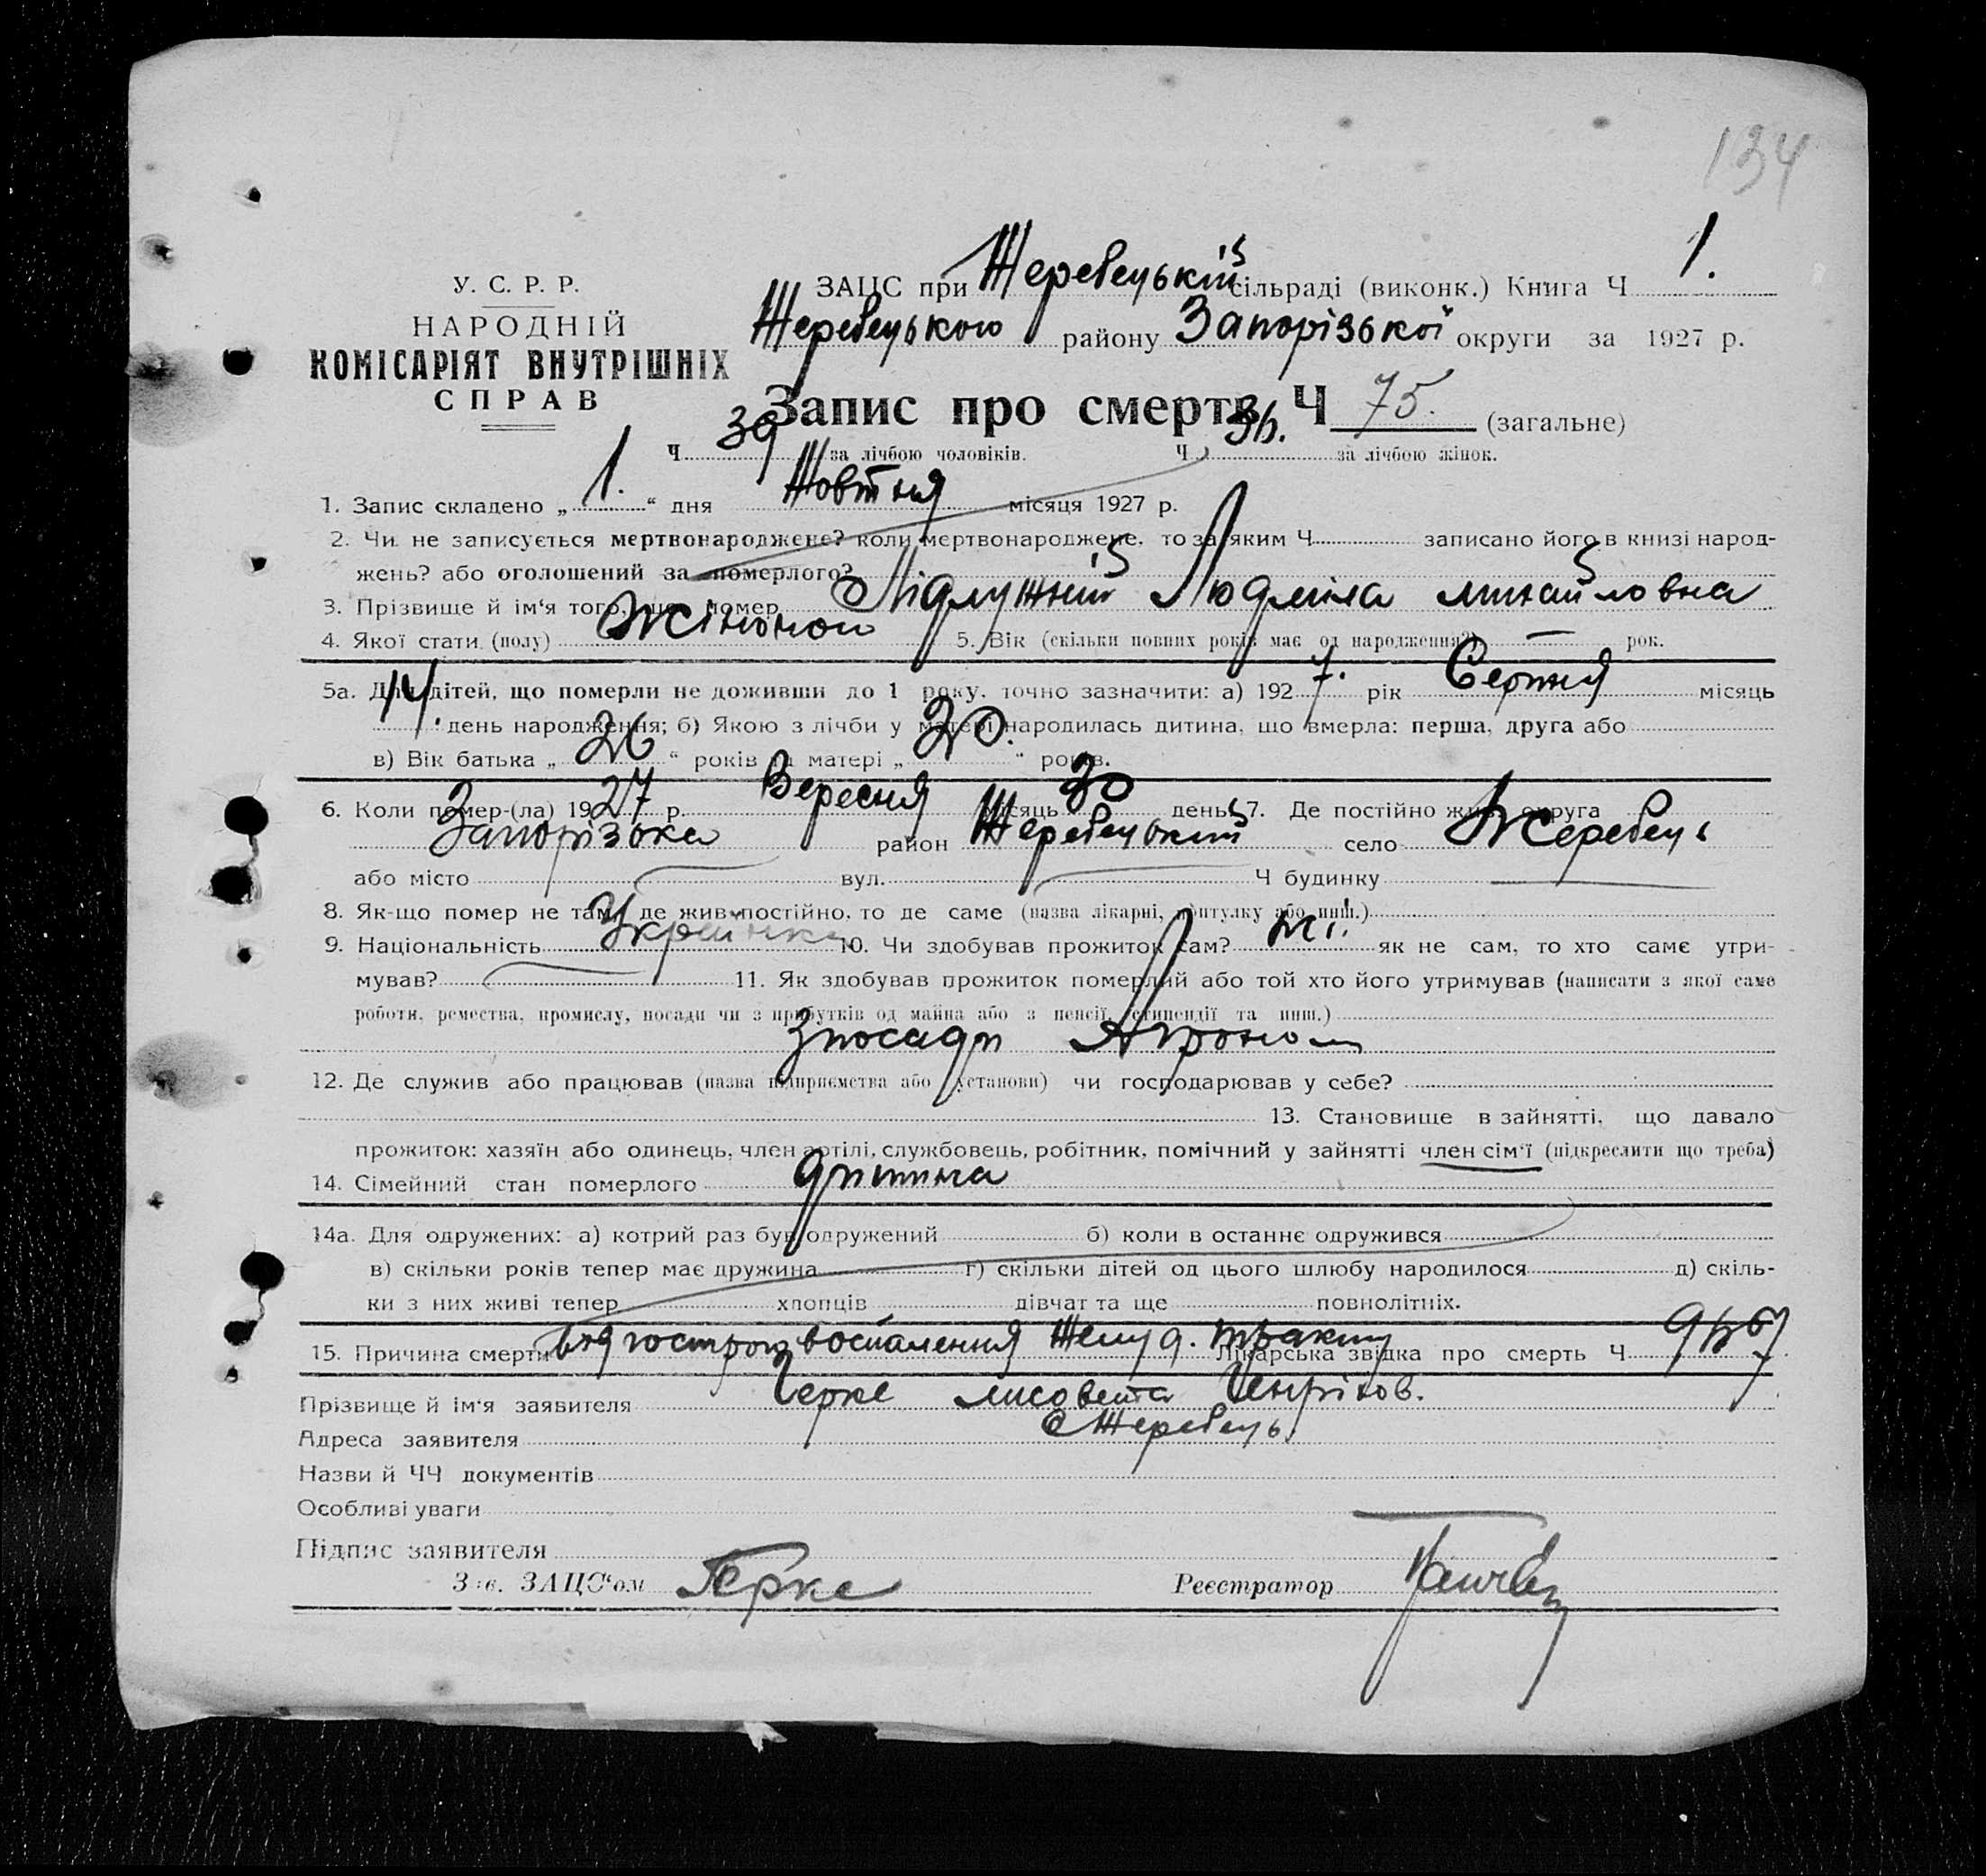 134
У. С. Р. Р.
НАРОДНІЙ
КОМІСАРІЯТ ВНУТРІШНІХ
СПРАВ
ЗАЦС при Жеребецькій сільраді (виконк.) Книга Ч 1.
Жеребецького району Запорізької округи за 1927 р.
Запис про смерть Ч 75. (загальне)
Ч 39 за лічбою чоловіків. Ч 36. за лічбою жінок.
1. Запис складено „ 1. “ дня Жовтня місяця 1927 р.
2. Чи не записується мертвонароджене? коли мертвонароджене, то за яким Ч записано його в книзі народ-
жень? або оголошений за померлого?
3. Прізвище й ім‘я того, що помер Підлужній Людміла михайловна
4. Якої стати (полу) жіночої 5. Вік (скільки повних років має од народження?) — рок.
5а. Для дітей, що померли не доживши до 1 року, точно зазначити: а) 192 7. рік Серпня місяць
14. день народження; б) Якою з лічби у матері народилась дитина, що вмерла: перша, друга або
в) Вік батька „ 26 “ років та матері „ 20. “ років.
6. Коли помер-(ла) 19 27 р. Вересня місяць 30 день 7. Де постійно жив: округа
Запорізька район Жеребецький село Жеребець
або місто вул. Ч будинку
8. Як-що помер не там, де жив постійно, то де саме (назва лікарні, притулку або инш.)
9. Національність Українка 10. Чи здобував прожиток сам? ні. як не сам, то хто саме утри-
мував? 11. Як здобував прожиток померлий або той хто його утримував (написати з якої саме
роботи, ремества, промислу, посади чи з прибутків од майна або з пенсії, стипендії та инш.)
З посади Агроном
12. Де служив або працював (назва підприємства або установи) чи господарював у себе?
13. Становище в зайнятті, що давало
прожиток: хазяїн або одинець, член артілі, службовець, робітник, помічний у зайнятті член сім‘ї (підкреслити що треба)
14. Сімейний стан померлого дитина
14а. Для одружених: а) котрий раз був одружений б) коли в останнє одружився
в) скільки років тепер має дружина г) скільки дітей од цього шлюбу народилося д) скіль-
ки з них живі тепер хлопців дівчат та ще повнолітніх.
15. Причина смерти від гострого воспалення Желуд. тракту Лікарська звідка про смерть Ч
Прізвище й ім‘я заявителя Герке лисовета Генріхов.
Адреса заявителя с Жеребець
Назви й ЧЧ документів
Особливі уваги
Підпис заявителя
Зав. ЗАЦС‘ом Герке Реєстратор